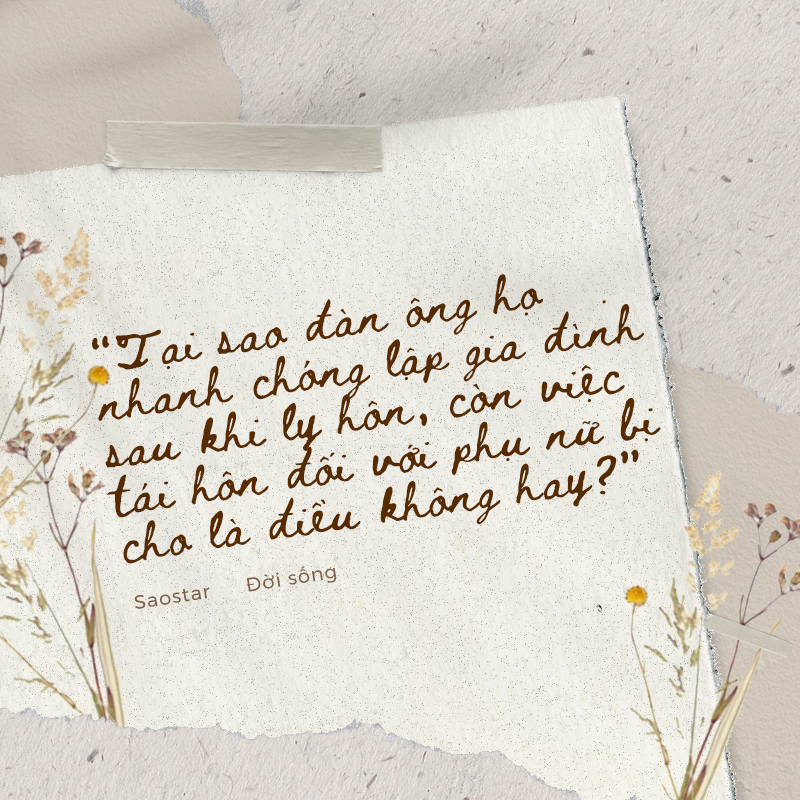 “Tại sao đàn ông họ
nhanh chóng lập gia đình
sau khi ly hôn, còn việc
tái hôn đối với phụ nữ bị
cho là điều không hay?”
Saostar Đời sống